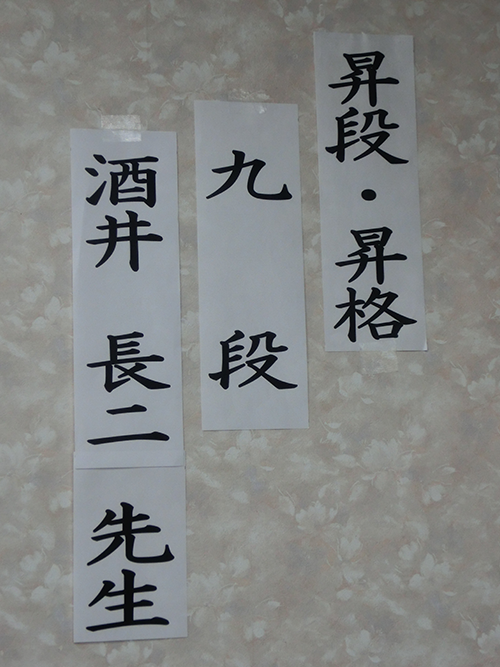 昇段・昇格
九段
酒井 長二 先生